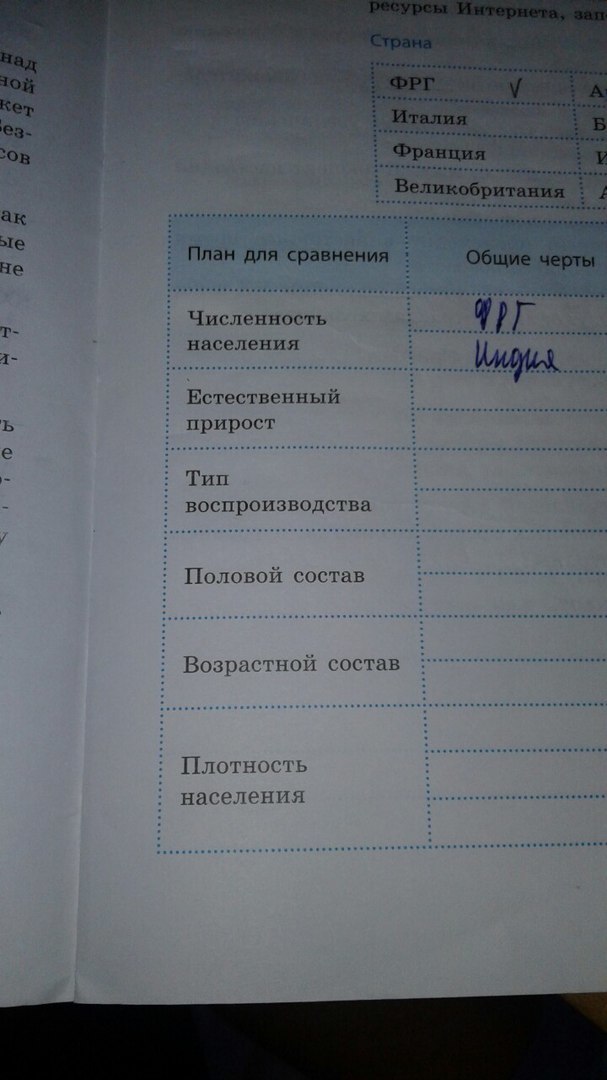 ресурсы Интернета, зап
над
ной
жет
Без-
сов
ак
ые
не
т-
и-
ть
е
о-
-
у
Страна
ФРГ V А
Италия Б
Франция И
Великобритания А
План для сравнения Общие черты
Численность
населения
ФРГ
Индия
Естественный
прирост
Тип
воспроизводства
Половой состав
Возрастной состав
Плотность
населения